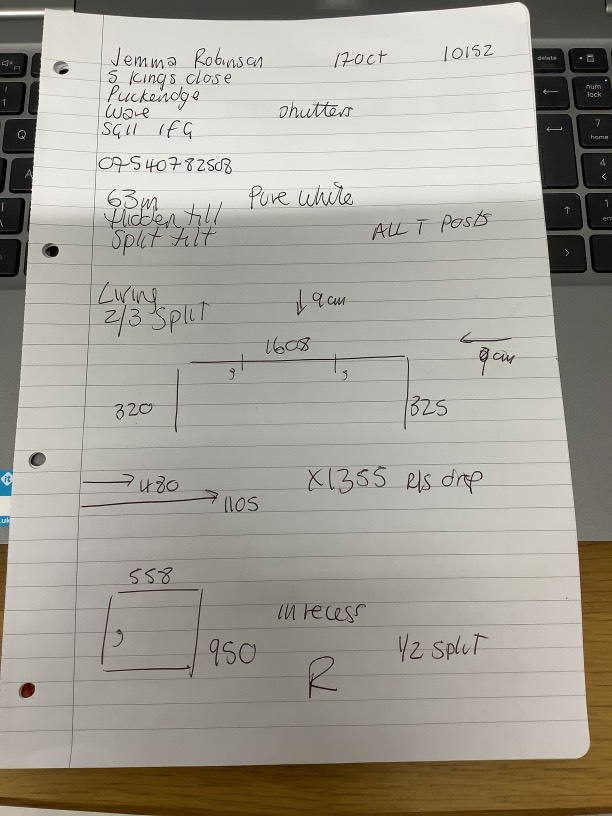 Jemma Robinson 17 Oct 10152
5 Kings close
Puckeridge
Ware Shutters
SG11 1FG
07540782508
63m Pure White
Hidden till
Split tilt ALL T Posts
Living ↓ 9cm
2/3 Split
1608 ← 9cm
320 325
→ 480 X1355 R/S drop
→ 1105
558
in recess
950 1/2 Split
R
delete
num lock
7
home
4
1
Q
A